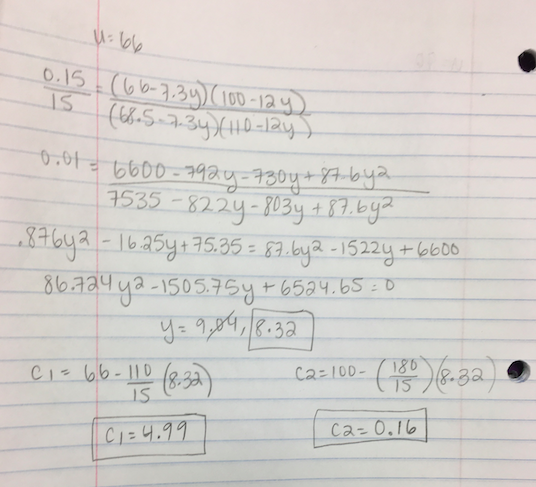 u=66
0.15/15 = (66-7.3y)(100-12y)/(68.5-7.3y)(110-12y)
0.01 = 6600-792y-730y+87.6y²/7535-822y-803y+87.6y²
.876y² - 16.25y+75.35 = 87.6y² -1522y + 6600
86.724y² -1505.75y + 6524.65 = 0
y = 9.04, 8.32
C1 = 66 - 110/15 (8.32) C2=100- (180/15)(8.32)
C1=4.99 C2=0.16